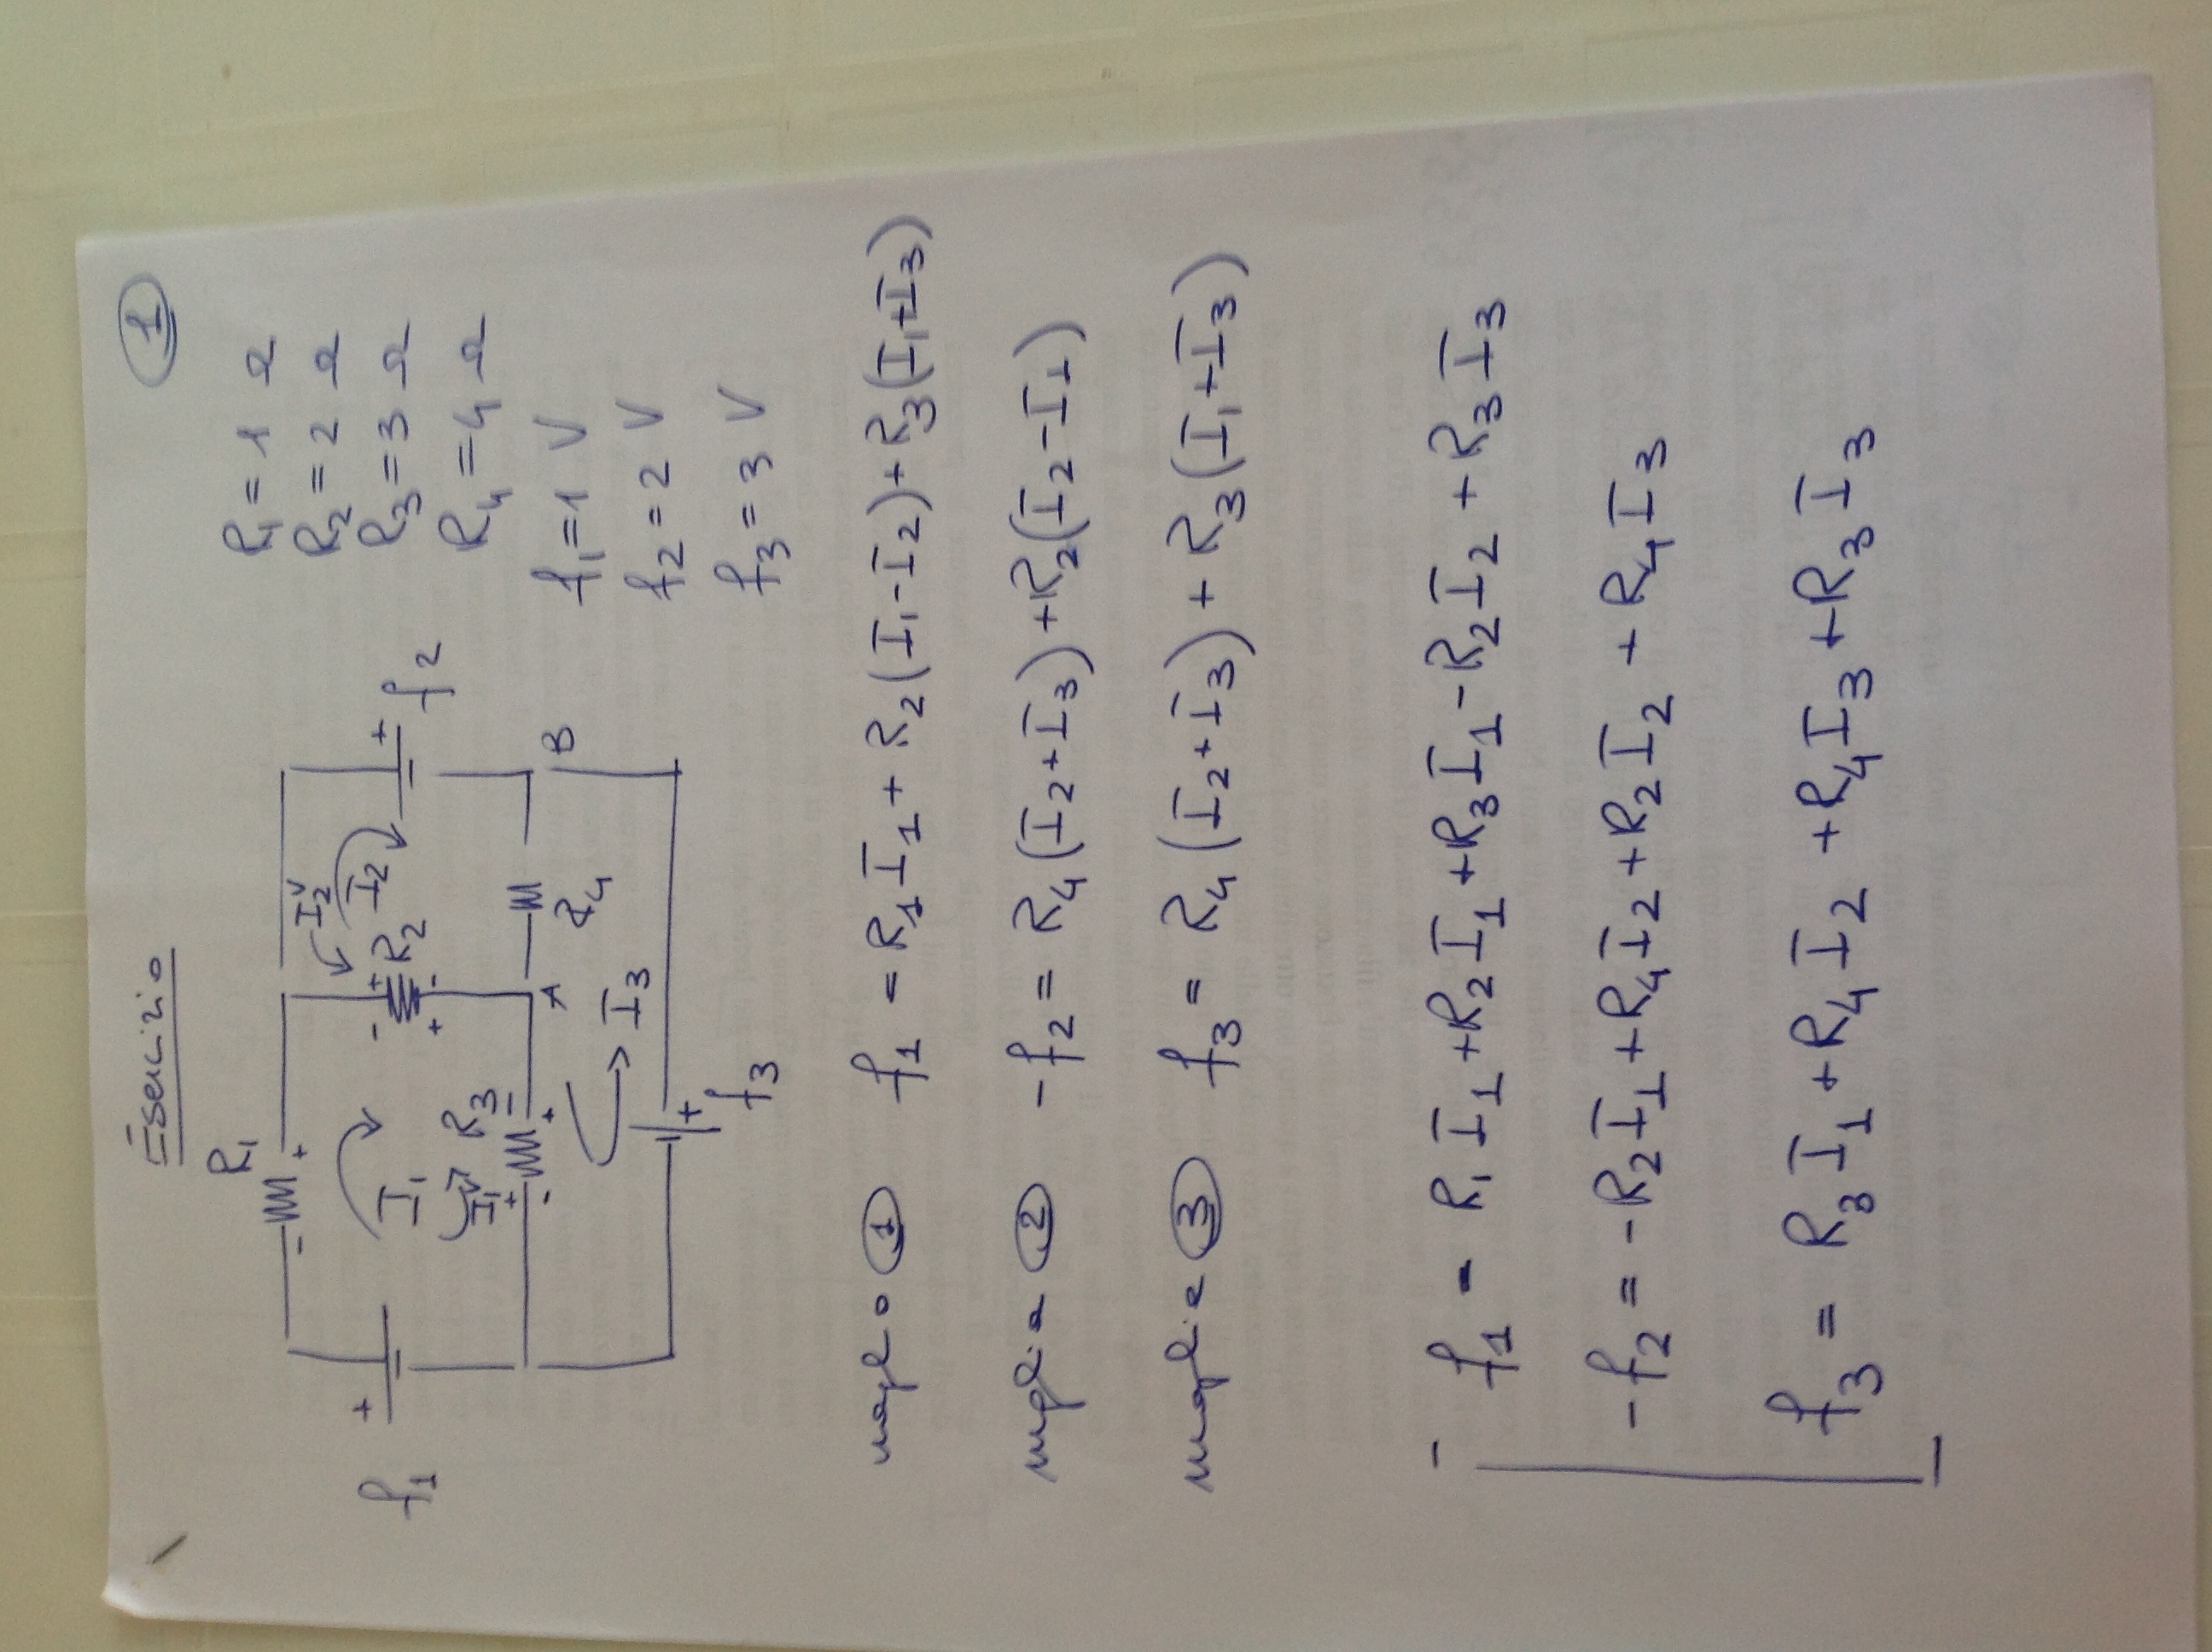 Esercizio
1
R1
R1 = 1 Ω
R2 = 2 Ω
R3 = 3 Ω
R4 = 4 Ω
f1 = 1 V
f2 = 2 V
f3 = 3 V
- +
I2
I2
+
f1
I1
- +
R2
+ -
+
f2
I1
R3
+ -
- +
A
R4
B
I3
+
f3
maglia 1 f1 = R1 I1 + R2 (I1 - I2) + R3 (I1 + I3)
maglia 2 -f2 = R4 (I2 + I3) + R2 (I2 - I1)
maglia 3 f3 = R4 (I2 + I3) + R3 (I1 + I3)
f1 = R1 I1 + R2 I1 + R3 I1 - R2 I2 + R3 I3
-f2 = -R2 I1 + R4 I2 + R2 I2 + R4 I3
f3 = R3 I1 + R4 I2 + R4 I3 + R3 I3